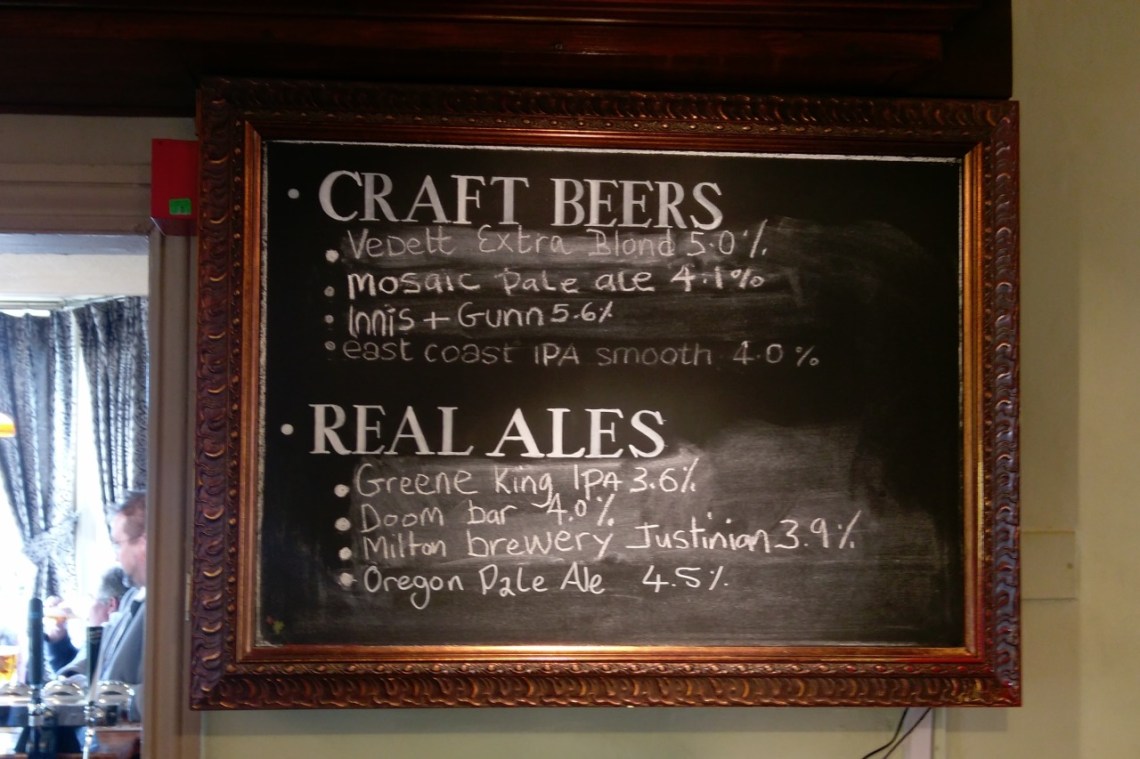 • CRAFT BEERS
• Vedett Extra Blond 5.0%
• Mosaic Pale ale 4.1%
• Innis + Gunn 5.6%
• east coast IPA smooth 4.0%
• REAL ALES
• Greene King IPA 3.6%
• Doom bar 4.0%
• Milton brewery Justinian 3.9%
• Oregon Pale Ale 4.5%